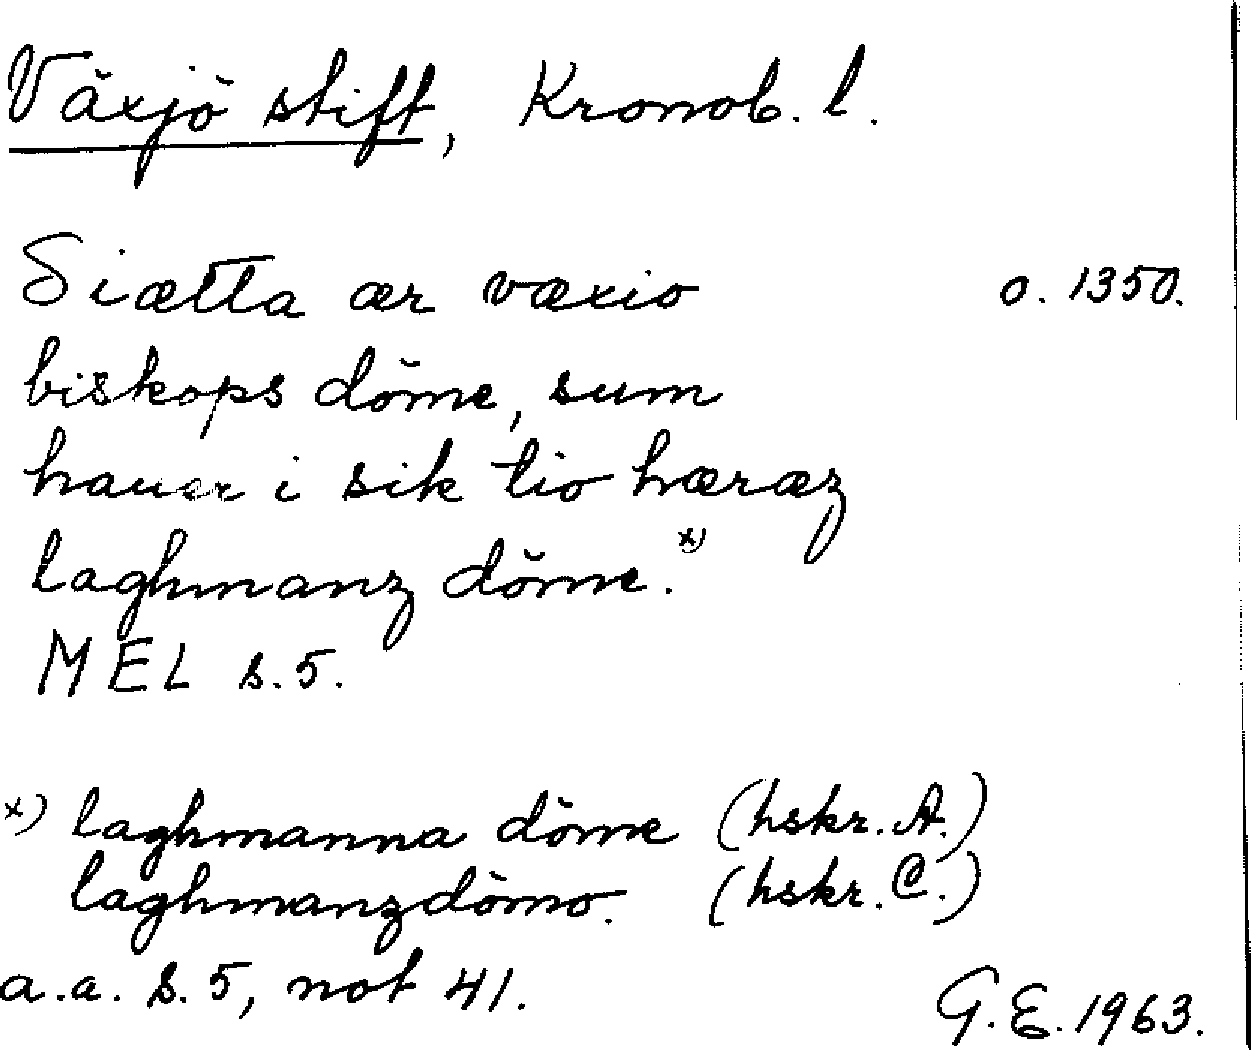 Växjö stift, Kronob. l.
Siætta ær væxio o. 1350.
biskops döme, sum
hauer i sik tio hæræz
laghmanz döme.x)
MEL s. 5.
x) laghmanna döme (hskr. A.)
laghmanzdömo. (hskr. C.)
a.a. s. 5, not 41.
G. E. 1963.